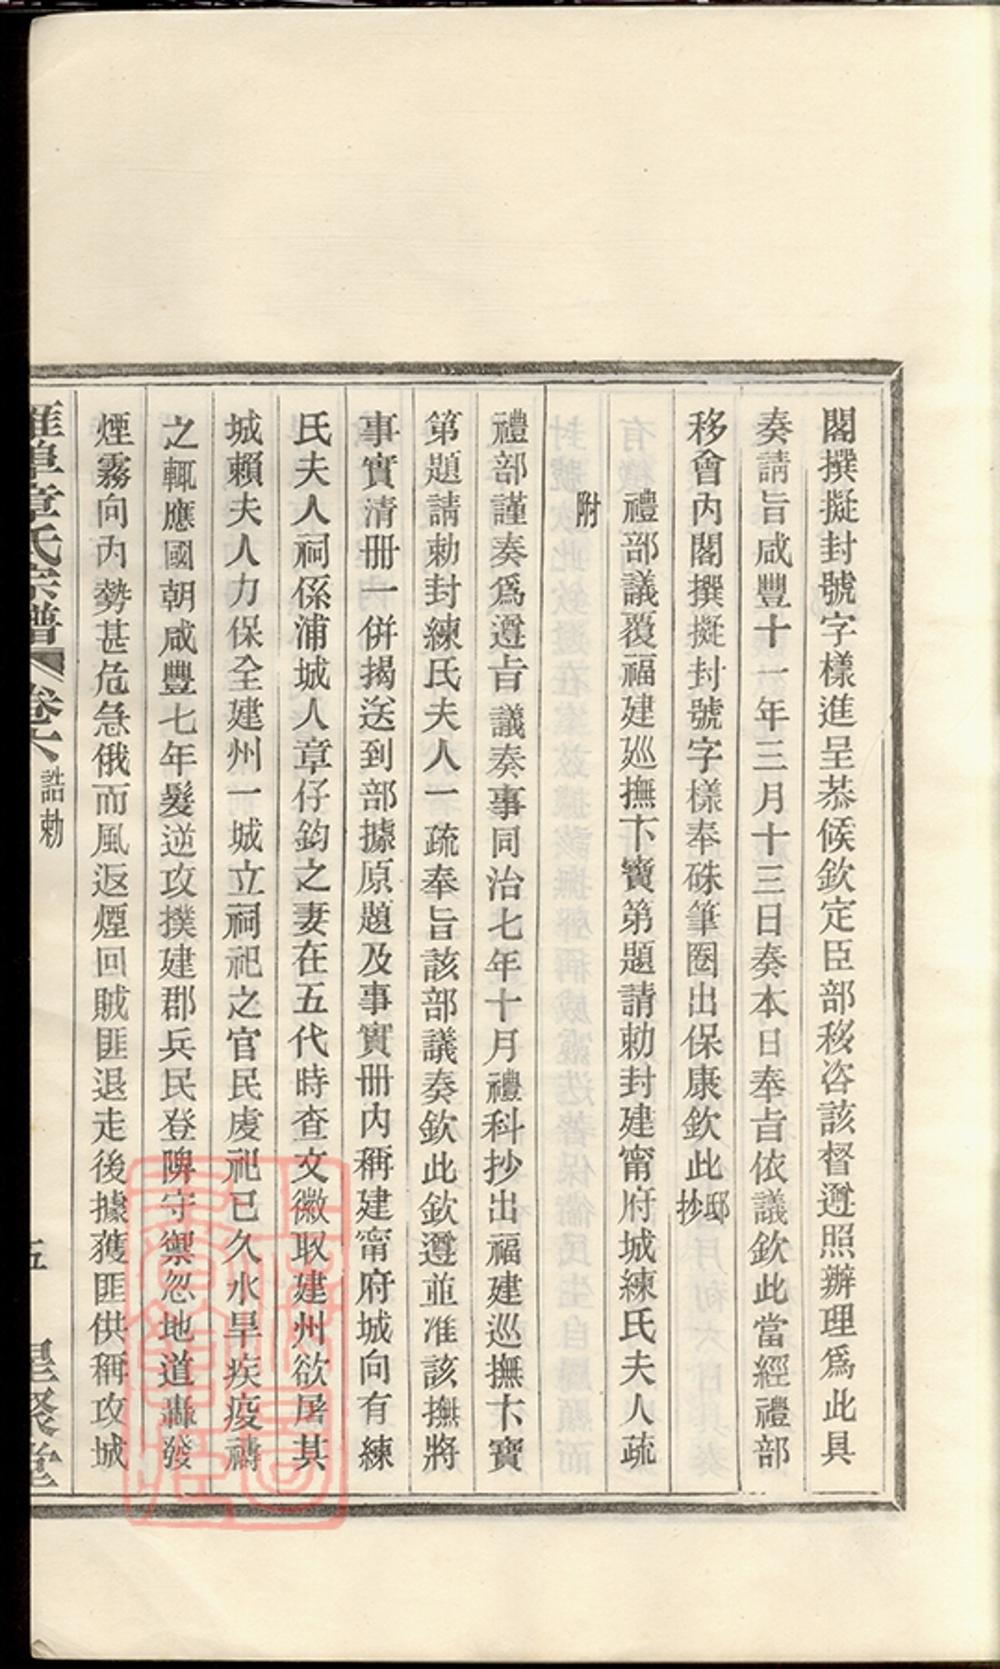 閣撰擬封號字樣進呈恭候欽定臣部移咨該督遵照辦理爲此具
奏請旨咸豐十一年三月十三日奏本日奉旨依議欽此當經禮部
移會內閣撰擬封號字樣奉硃筆圈出保康欽此邸抄
禮部議覆福建廵撫卞寶第題請勅封建甯府城練氏夫人疏
附
禮部謹奏爲遵旨議奏事同治七年十月禮科抄出福建巡撫卞寶
第題請勅封練氏夫人一疏奉旨該部議奏欽此欽遵並准該撫將
事實清冊一併揭送到部據原題及事實冊內稱建甯府城向有練
氏夫人祠係浦城人章仔鈞之妻在五代時查文徽取建州欲屠其
城賴夫人力保全建州一城立祠祀之官民虔祀已久水旱疾疫禱
之輒應國朝咸豐七年髮逆攻撲建郡兵民登陴守禦忽地道轟發
煙霧向內勢甚危急俄而風返煙回賊匪退走後據獲匪供稱攻城
章氏宗譜 卷六 誥勅 五